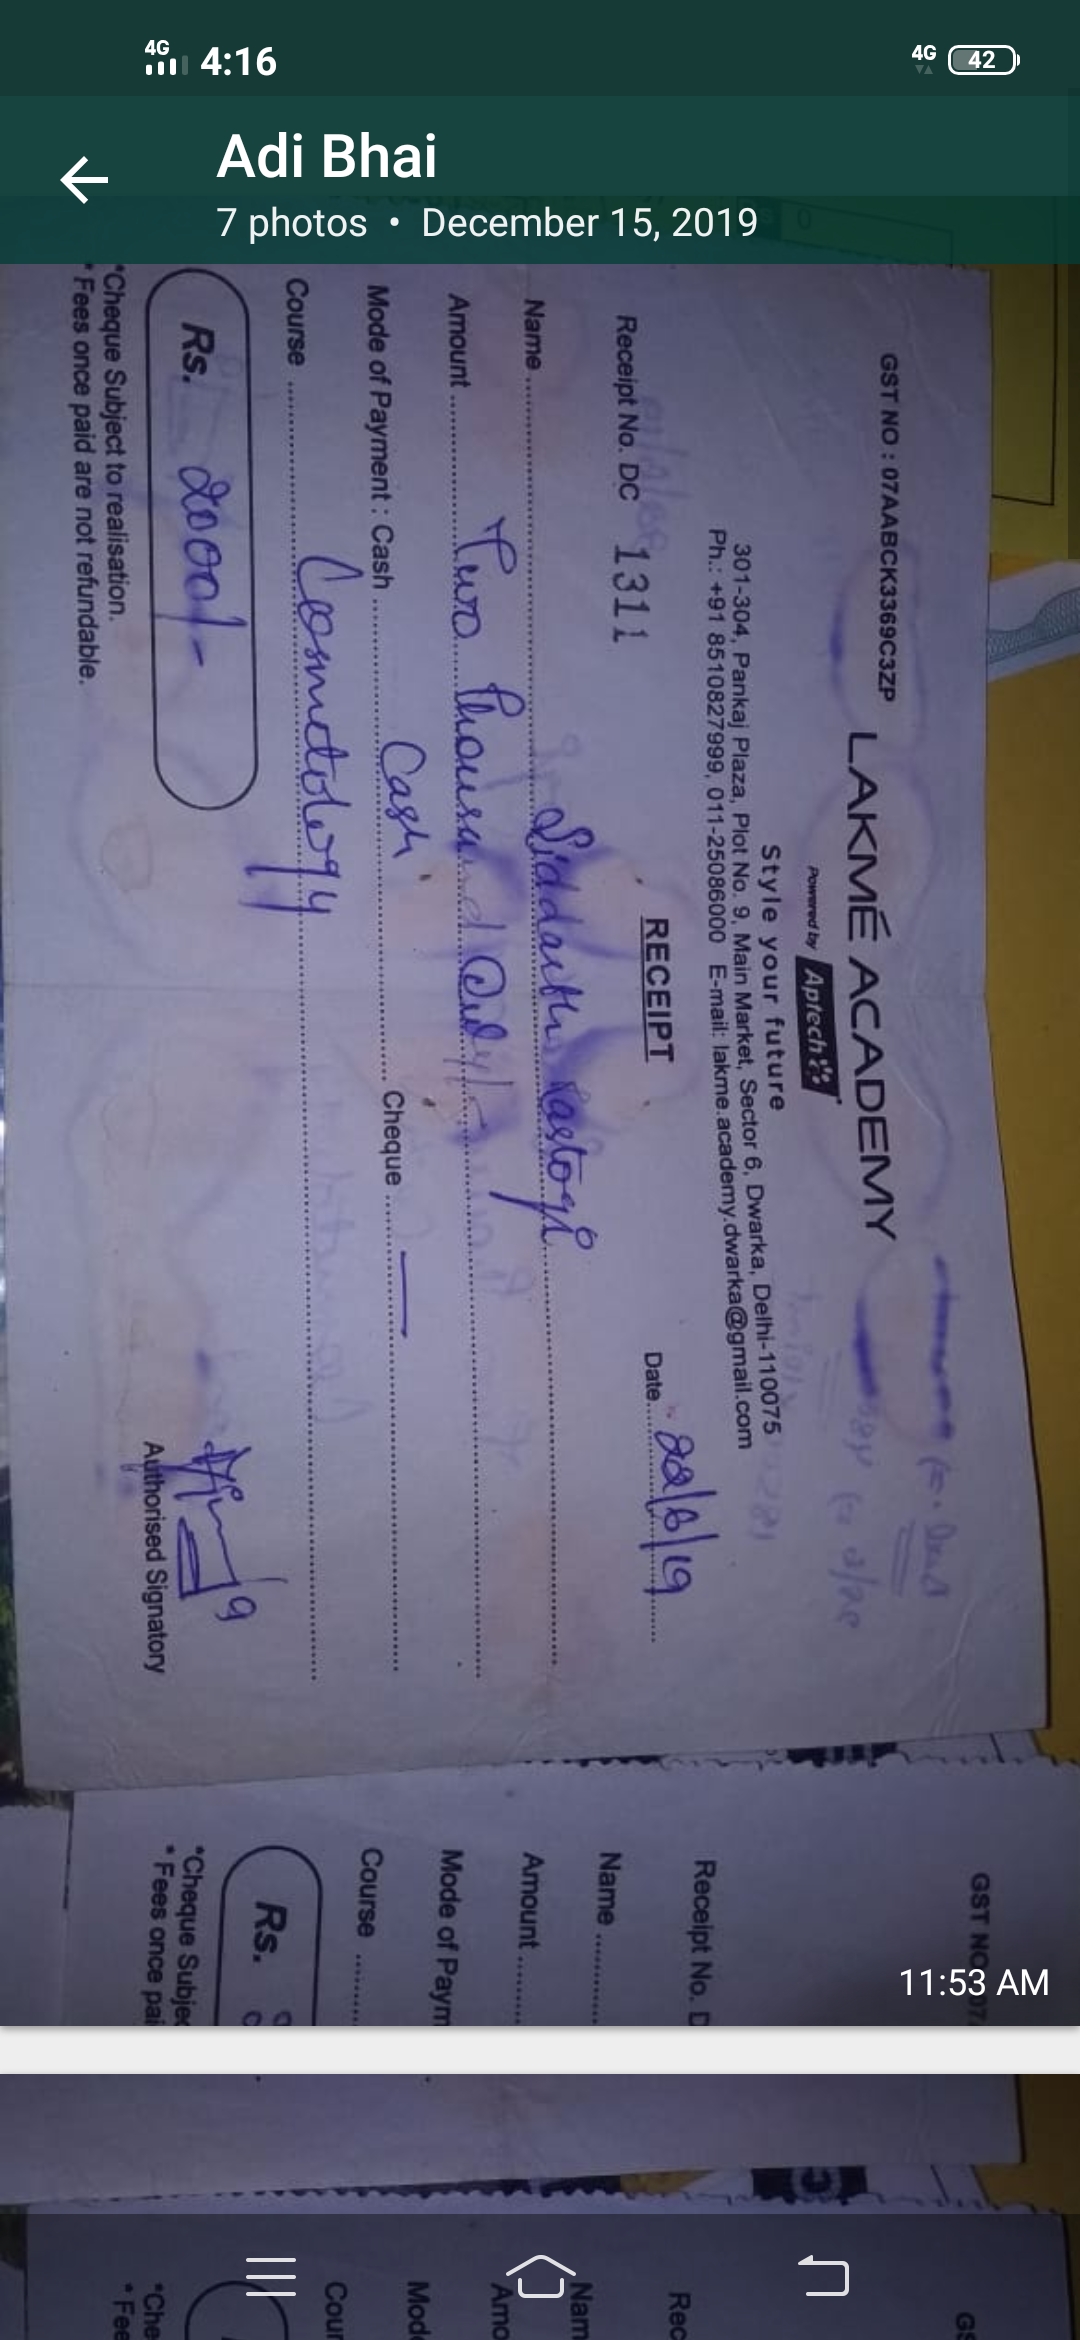 4G 4:16 4G 42
Adi Bhai
7 photos • December 15, 2019
GST NO : 07AABCK3369C3ZP
LAKMÉ ACADEMY
Powered by Aptech
Style your future
301-304, Pankaj Plaza, Plot No. 9, Main Market, Sector 6, Dwarka, Delhi-110075
Ph.: +91 8510827999, 011-25086000 E-mail: lakme.academy.dwarka@gmail.com
RECEIPT
Receipt No. DC 1311 Date 22/6/19
Name Siddarth Rastogi
Amount Two Thousand Only/-
Mode of Payment : Cash Cash Cheque —
Course Cosmetology
Rs. 2000/-
Authorised Signatory
*Cheque Subject to realisation.
* Fees once paid are not refundable.
GST NO
Receipt No. D
Name
Amount
Mode of Paym
Course
Rs.
*Cheque Subje
* Fees once pai
11:53 AM
GS
Rec
Nam
Amo
Mod
Cour
*Che
* Fee